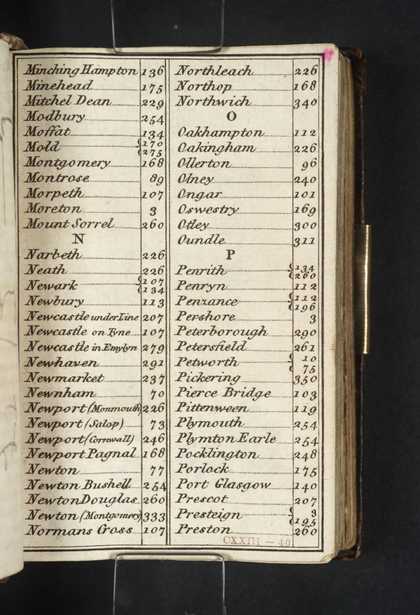 Minching Hampton 136
Minehead 175
Mitchel Dean 229
Modbury 254
Moffat 134
Mold {170 275
Montgomery 168
Montrose 89
Morpeth 107
Moreton 3
Mount Sorrel 260
N
Narbeth 226
Neath 226
Newark {107 134
Newbury 113
Newcastle under Line 207
Newcastle on Tyne 107
Newcastle in Emlyn 279
Newhaven 291
Newmarket 237
Newnham 70
Newport (Monmouth) 226
Newport (Salop) 73
Newport (Cornwall) 246
Newport Pagnal 168
Newton 77
Newton Bushell 254
Newton Douglas 260
Newton (Montgomery) 333
Normans Cross 107
Northleach 226
Northop 168
Northwich 340
O
Oakhampton 112
Oakingham 226
Ollerton 96
Olney 240
Ongar 101
Oswestry 169
Otley 300
Oundle 311
P
Penrith {134 260
Penryn 112
Penzance {112 196
Pershore 3
Peterborough 290
Petersfield 261
Petworth {10 75
Pickering 350
Pierce Bridge 103
Pittenween 119
Plymouth 254
Plymton Earle 254
Pocklington 248
Porlock 175
Port Glasgow 140
Prescot 207
Presteign {3 195
Preston 260
CXXIII - 40